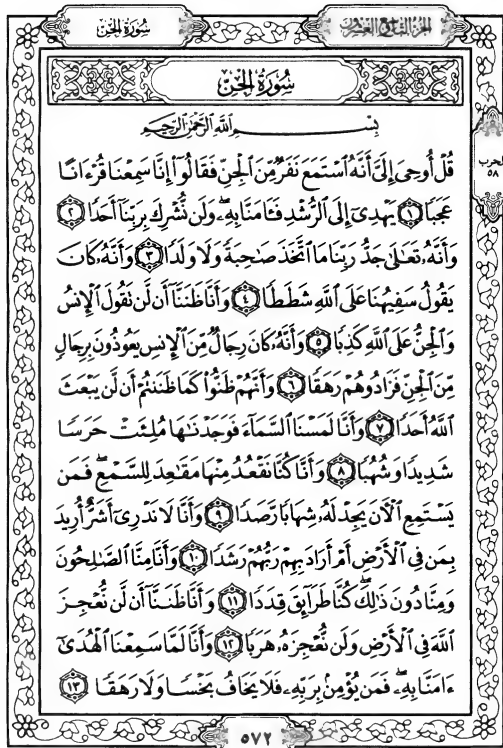 سُورَةُ الجِنّ
الجزء التاسع والعشرون
سُورَةُ الجِنّ
بِسْمِ اللَّهِ الرَّحْمَٰنِ الرَّحِيمِ
حزب
٥٨
قُلْ أُوحِيَ إِلَيَّ أَنَّهُ ٱسْتَمَعَ نَفَرٌ مِّنَ ٱلْجِنِّ فَقَالُوٓا۟ إِنَّا سَمِعْنَا قُرْءَانًا
عَجَبًا ١ يَهْدِىٓ إِلَى ٱلرُّشْدِ فَـَٔامَنَّا بِهِۦ وَلَن نُّشْرِكَ بِرَبِّنَآ أَحَدًا ٢
وَأَنَّهُۥ تَعَٰلَىٰ جَدُّ رَبِّنَا مَا ٱتَّخَذَ صَٰحِبَةً وَلَا وَلَدًا ٣ وَأَنَّهُۥ كَانَ
يَقُولُ سَفِيهُنَا عَلَى ٱللَّهِ شَطَطًا ٤ وَأَنَّا ظَنَنَّآ أَن لَّن نَقُولَ ٱلْإِنسُ
وَٱلْجِنُّ عَلَى ٱللَّهِ كَذِبًا ٥ وَأَنَّهُۥ كَانَ رِجَالٌ مِّنَ ٱلْإِنسِ يَعُوذُونَ بِرِجَالٍ
مِّنَ ٱلْجِنِّ فَزَادُوهُمْ رَهَقًا ٦ وَأَنَّهُمْ ظَنُّوا۟ كَمَا ظَنَنتُمْ أَن لَّن يَبْعَثَ
ٱللَّهُ أَحَدًا ٧ وَأَنَّا لَمَسْنَا ٱلسَّمَآءَ فَوَجَدْنَٰهَا مُلِئَتْ حَرَسًا
شَدِيدًا وَشُهُبًا ٨ وَأَنَّا كُنَّا نَقْعُدُ مِنْهَا مَقَٰعِدَ لِلسَّمْعِ فَمَن
يَسْتَمِعِ ٱلْءَانَ يَجِدْ لَهُۥ شِهَابًا رَّصَدًا ٩ وَأَنَّا لَا نَدْرِىٓ أَشَرٌّ أُرِيدَ
بِمَن فِى ٱلْأَرْضِ أَمْ أَرَادَ بِهِمْ رَبُّهُمْ رَشَدًا ١٠ وَأَنَّا مِنَّا ٱلصَّٰلِحُونَ
وَمِنَّا دُونَ ذَٰلِكَ كُنَّا طَرَآئِقَ قِدَدًا ١١ وَأَنَّا ظَنَنَّآ أَن لَّن نُّعْجِزَ
ٱللَّهَ فِى ٱلْأَرْضِ وَلَن نُّعْجِزَهُۥ هَرَبًا ١٢ وَأَنَّا لَمَّا سَمِعْنَا ٱلْهُدَىٰٓ
ءَامَنَّا بِهِۦ فَمَن يُؤْمِنۢ بِرَبِّهِۦ فَلَا يَخَافُ بَخْسًا وَلَا رَهَقًا ١٣
٥٧٢